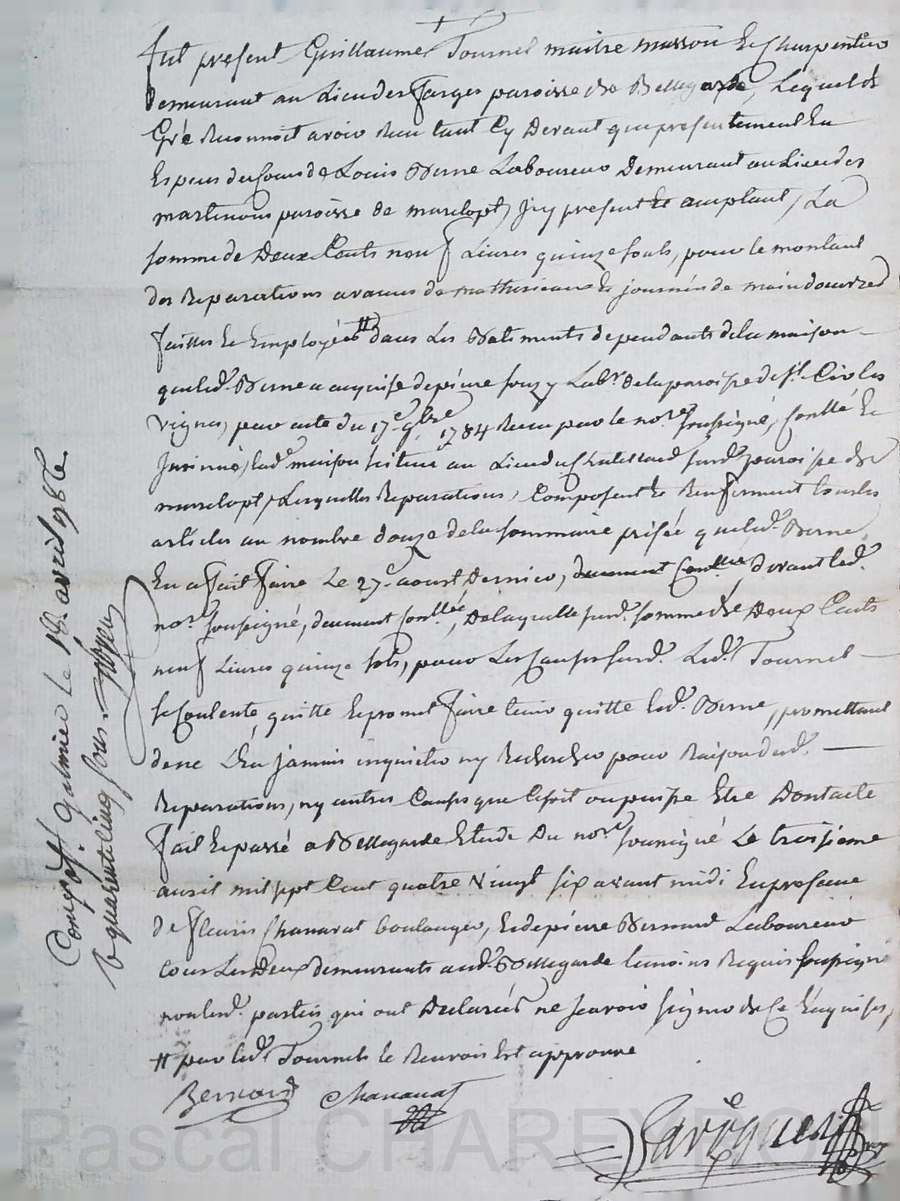 fut present Guillaume Tournel maitre masson et Charpentier
demeurant au Lieu des farges paroisse de Bellegarde, Lequel de
Gré Reconnoit avoir Reçu tant Cy Devant que presentement En
Especes du Cours de Louis Berne Laboureur Demeurant au Lieu des
martinons paroisse de marclopt, Icy present Et acceptant, La
somme de Deux Cents neuf Livres quinze sols, pour le montant
des Reparations avances de matheriaux Et journées de main doeuvre
faittes Et Employées # dans Les Batiments dependants de la maison
que led. Berne a acquise de pierre souzy Lab.r de la paroisse de St. Cir les
Vignes, par acte du 17.e 9bre 1784 Reçu par le no.re soussigné, Conllé Et
Insinué, lad.e maison située au Lieu du Chatelard susd. paroisse de
marclopt, Lesquelles Reparations, Composent Et Renferment tous les
articles au nombre douze de la sommaire prisée que led. Berne
En a fait faire Le 27.e aoust Dernier, devant led.
no.re soussigné, duement Conllée, De laquelle susd. somme de Deux Cents
neuf Livres quinze sols, pour Les Causes susd. Led. Tournel
se Contente, quitte Et promet faire tenir quitte led. Berne, promettant
de ne L'En jamais inquieter ny Rechercher pour Raison desd.
Reparations, ny autres Causes que Ce soit ou puisse Etre Dont acte
fait Et passé a Bellegarde Etude Du no.re soussigné Le troisieme
avril mil sept Cent quatre Vingt six avant midi En presence
de fleuris Chanavat boulanger, Et de pierre Bernard Laboureur
tous Les Deux demeurants aud. Bellegarde temoins Requis soussignés
non lesd. parties qui ont Declarés ne sçavoir signer de Ce Enquises,
# par led. Tournel le Renvoi Est approuvé
Bernard Chanavat
Pascal CHAREYRON
Con.lé a St. galmier le 18. avril 1786
R quarante cinq sous.